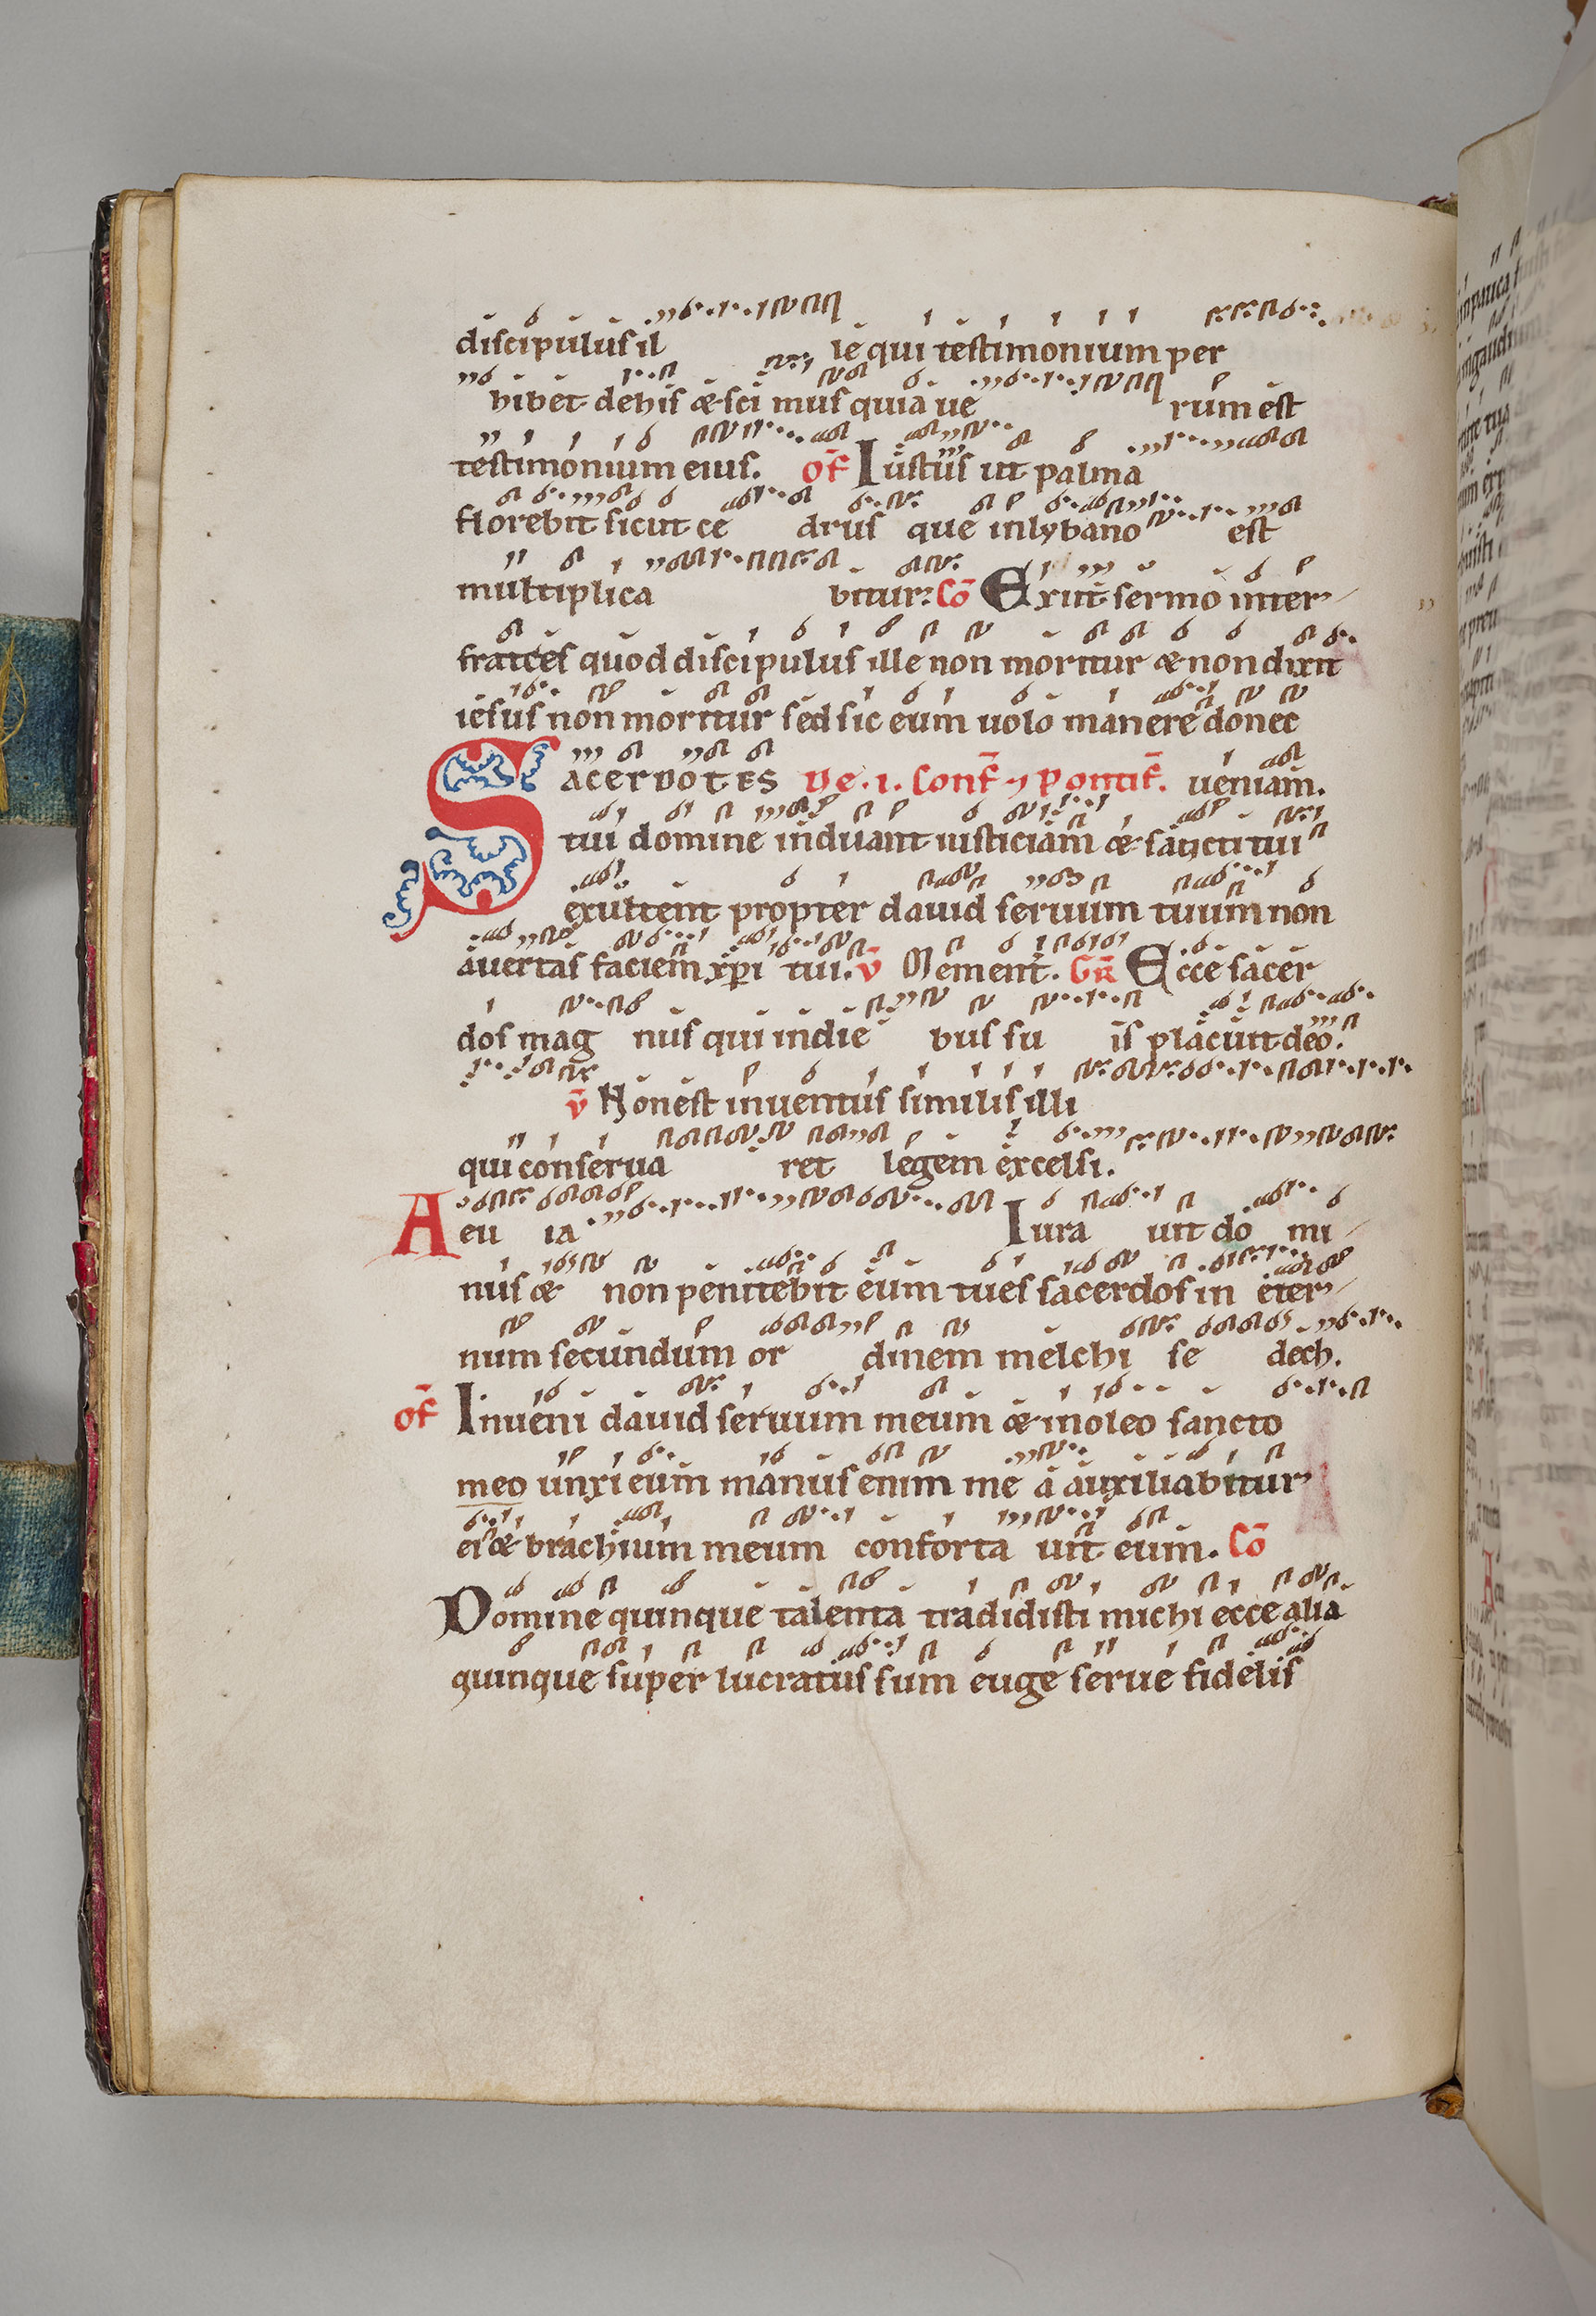 discipulus il le qui testimonium per
hibet de his & sci mus quia ue rum est
testimonium eius. Of Iustus ut palma
florebit sicut ce drus que in lybano est
multiplica bitur: Cō Exiit sermo inter
fratres quod discipulus ille non moritur & non dixit
iesus non moritur sed sic eum uolo manere donec
SACERDOTES De .i. Conf. 7 Pontif. ueniam.
tui domine induant iusticiam & sancti tui
exultent propter dauid seruum tuum non
auertas faciem xp̄i tui. V Mement. GR Ecce sacer
dos mag nus qui in die bus su is placuit deo.
V Non est inuentus similis illi
qui conserua ret legem excelsi.
A eu ia Iura uit do mi
nus & non penitebit eum tu es sacerdos in eter
num secundum or dinem melchi se dech.
Of Inueni dauid seruum meum & in oleo sancto
meo unxi eum manus enim me a auxiliabitur
ei & brachium meum conforta uit eum. Cō
Domine quinque talenta tradidisti michi ecce alia
quinque super lucratus sum euge serue fidelis